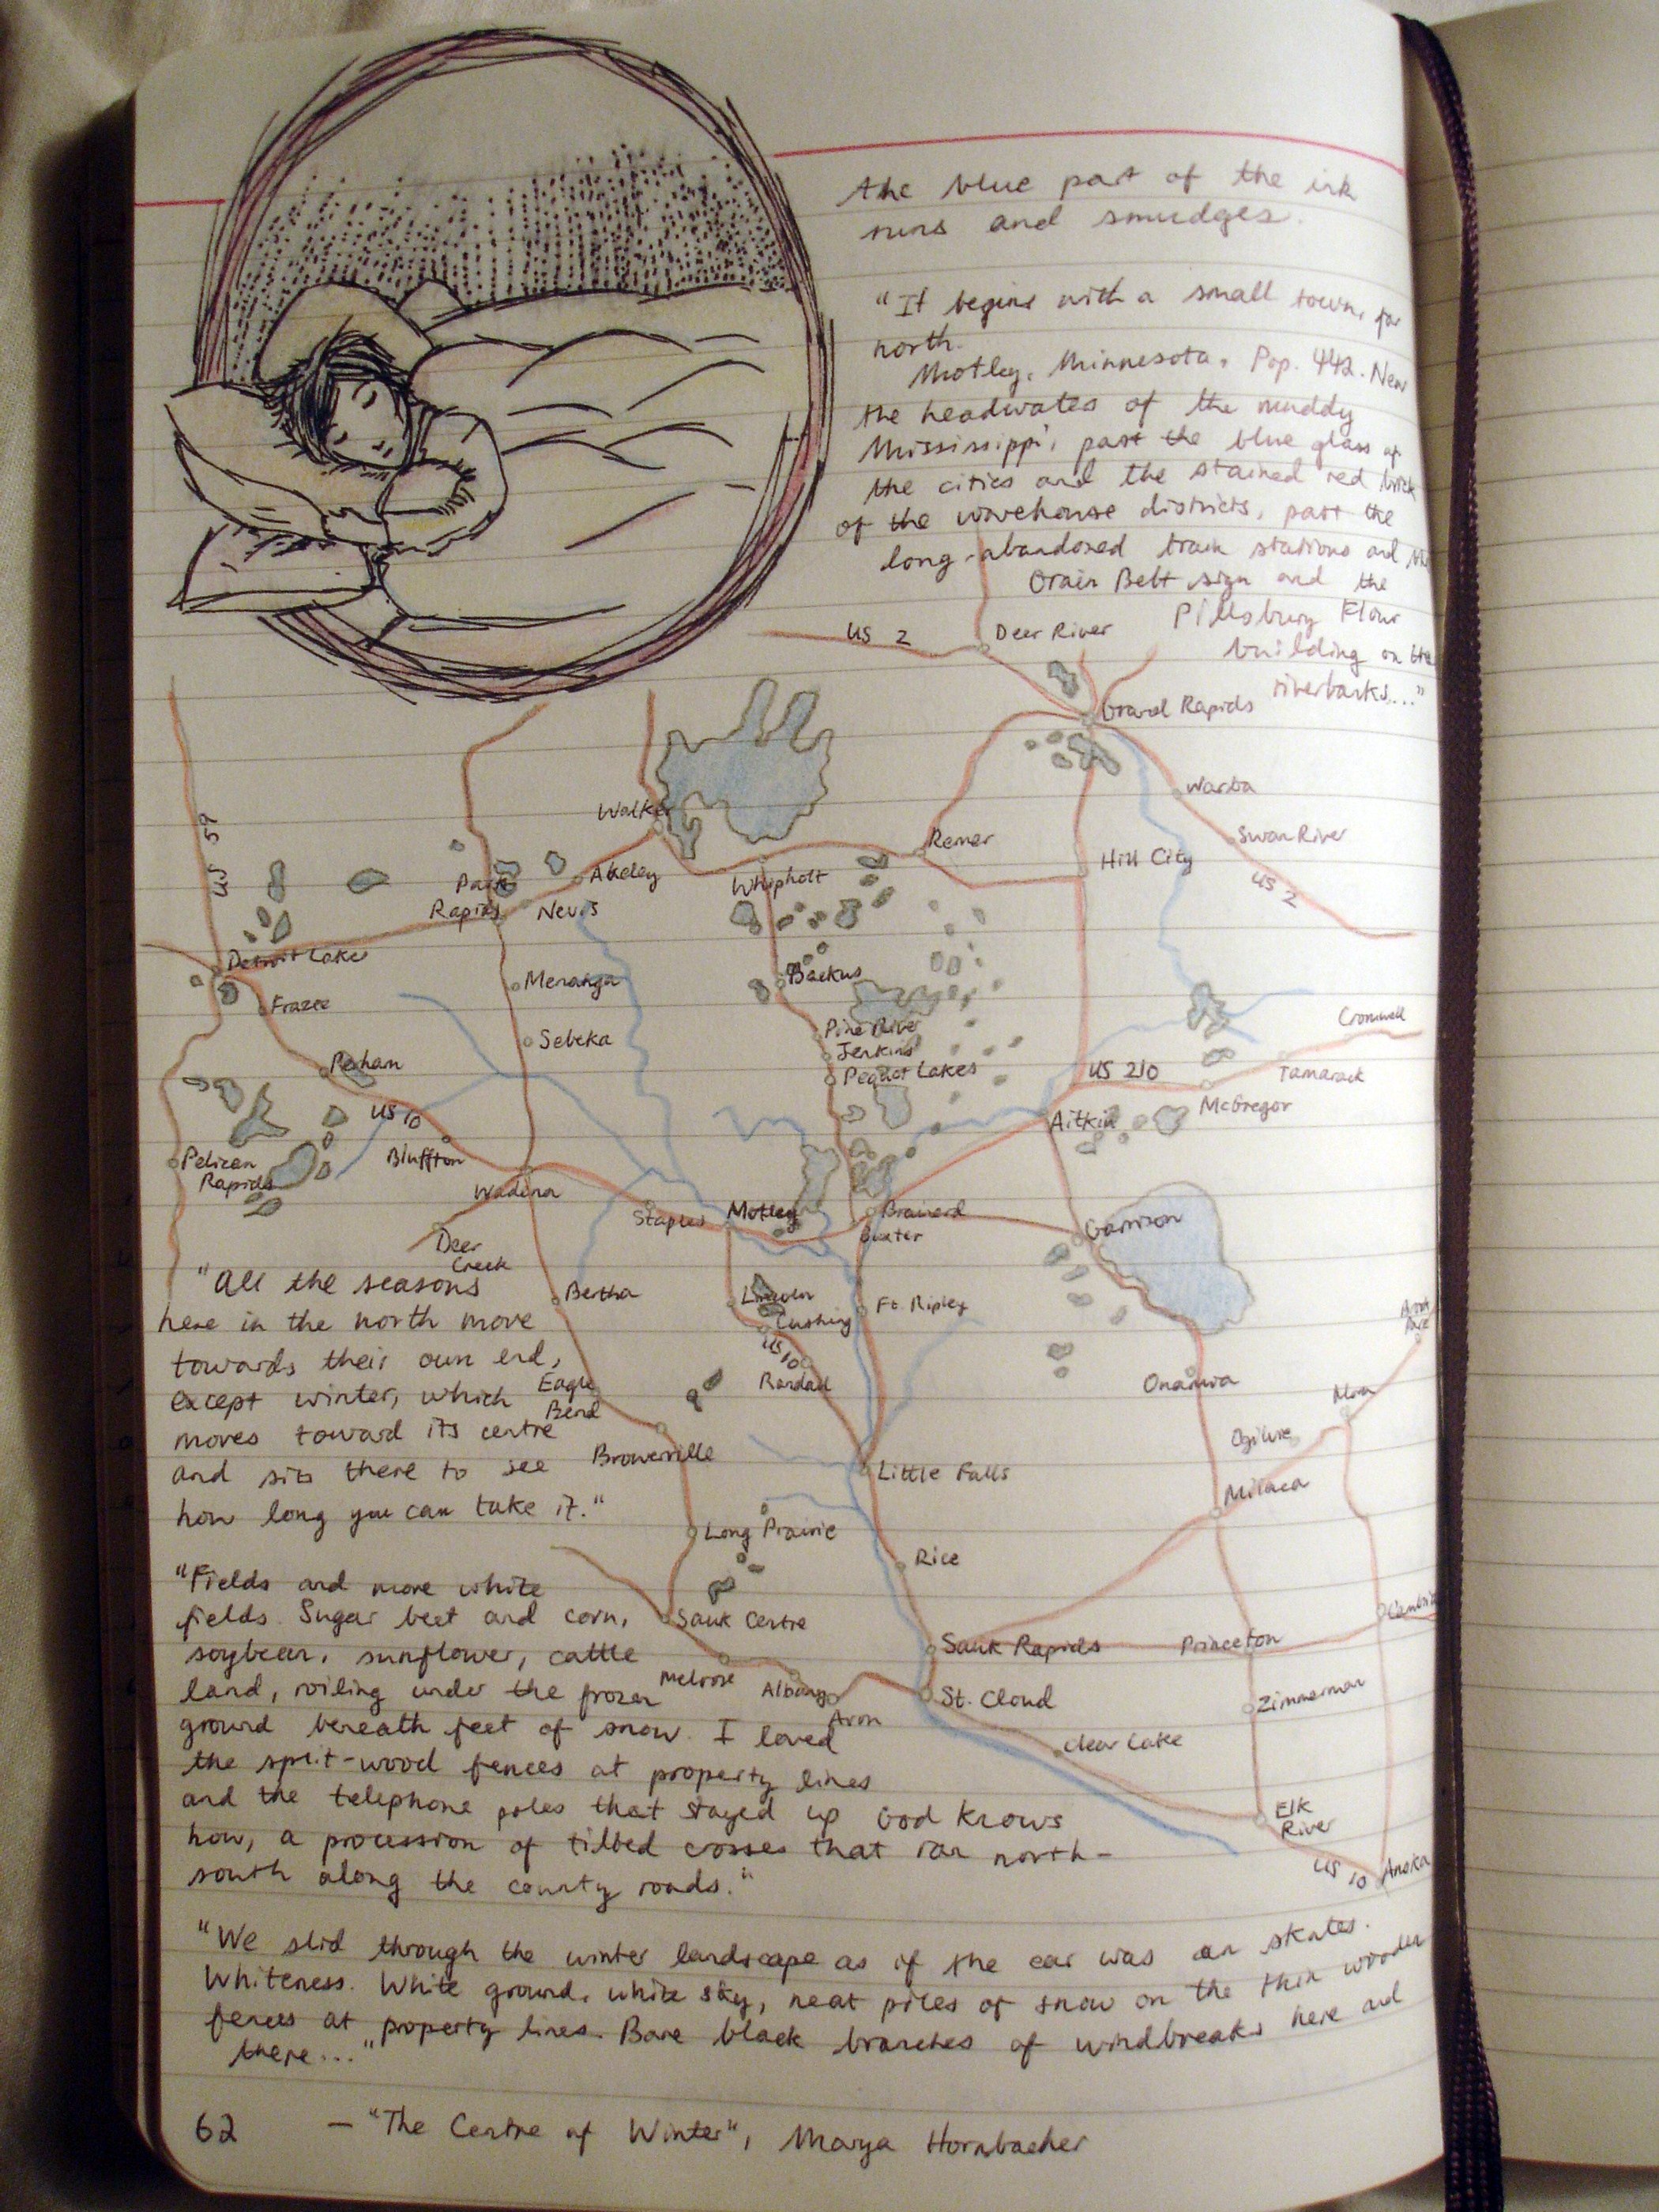 the blue part of the ink
runs and smudges.
"It begins with a small town, far
north.
Motley, Minnesota, Pop. 442. Near
the headwates of the muddy
Mississippi, past the blue glass of
the cities and the stained red brick
of the warehouse districts, past the
long-abandoned train stations and the
Grain Belt sign and the
Pillsbury Flour
building on the
riverbanks..."
US 2
Deer River
Grand Rapids
Warba
Swan River
US 2
Walker
Remer
Hill City
US 59
Park
Rapids
Akeley
Nevis
Whipholt
Detroit Lakes
Frazee
Menahga
Backus
Sebeka
Pine River
Jenkins
Pequot Lakes
Cromwell
Tamarack
US 210
McGregor
Aitkin
Perham
US 10
Bluffton
Pelican
Rapids
Wadena
Staples
Motley
Brainerd
Baxter
Garrison
Deer
Creek
Bertha
Lincoln
Cushing
Ft. Ripley
US 10
Randall
Onamia
Mora
Ogilvie
Eagle
Bend
Browerville
Little Falls
Milaca
Long Prairie
Rice
Sauk Centre
Sauk Rapids
Princeton
Melrose
Albany
Avon
St. Cloud
Zimmerman
Clear Lake
Elk
River
US 10
Anoka
"All the seasons
here in the north move
towards their own end,
except winter, which
moves toward its centre
and sits there to see
how long you can take it."
"Fields and more white
fields. Sugar beet and corn,
soybean, sunflower, cattle
land, roiling under the frozen
ground beneath feet of snow. I loved
the split-wood fences at property lines
and the telephone poles that stayed up God knows
how, a procession of tilted crosses that ran north-
south along the county roads."
"We slid through the winter landscape as if the car was on skates.
Whiteness. White ground, white sky, neat piles of snow on the thin wooden
fences at property lines. Bare black branches of windbreaks here and
there..."
62 — "The Centre of Winter", Marya Hornbacher